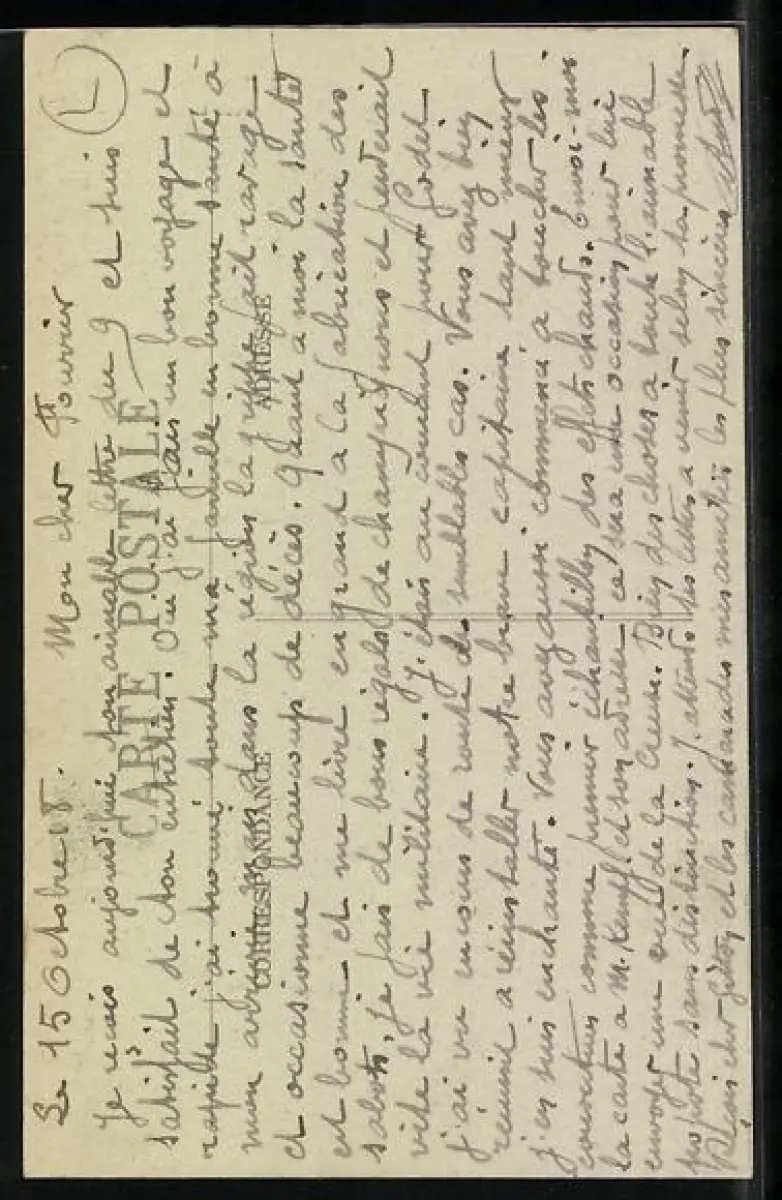 Le 15 Octobre 18. Mon cher Fourrier
L
Je reçois aujourd'hui ton aimable lettre du 9 et suis
CARTE POSTALE
satisfait de ton entretien. Oui j'ai fais un bon voyage et
rapide j'ai trouvé toute ma famille en bonne santé à
CORRESPONDANCE
ADRESSE
mon arrivée mais dans la région la grippe fait ravage
et occasionne beaucoup de décès. Quand a moi la santé
est bonne et me livre en grand a la fabrication des
sabots, je fais de bons régals de champignons et perdrait
vite la vie militaire. J'étais au courant pour Godet
j'ai vu en cours de route de semblables cas. Vous avez bien
réunit a réinstaller notre brave capitaine tant mieux
j'en suis enchanté. Vous avez aussi commencé a toucher les
couvertures comme premier échantillon des effets chauds. Envoi-moi
la carte a M. Kempf et son adresse ce sera une occasion pour lui
envoyer une vue de la Creuse. Bien des choses a toute l'aimable
popote sans distinction. J'attends tes lettres a venir selon ta promesse.
Reçois cher et les camarades mes amitiés les plus sincères